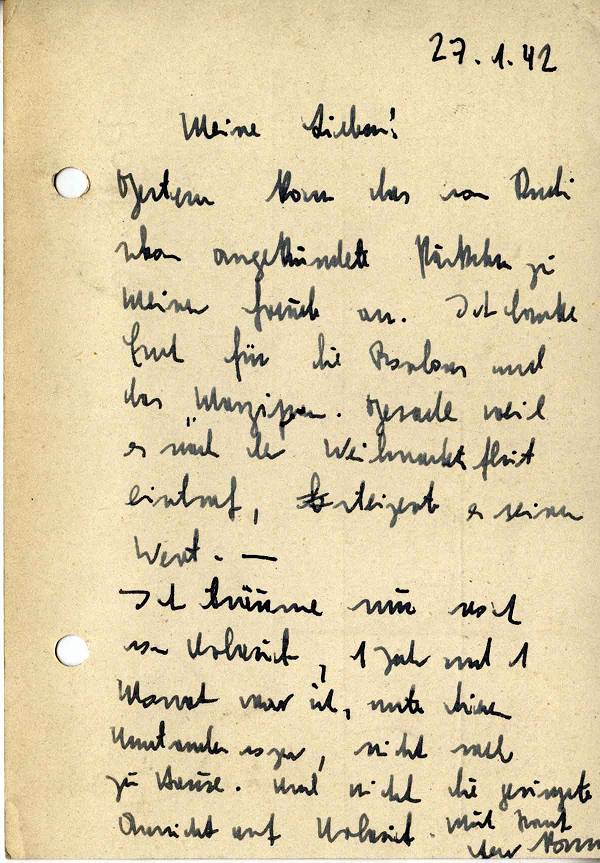 27.1.42
Meine Lieben!
Gestern kam das von Rudi
schon angekündete Päckchen zu
meiner Freude an. Ich danke
Euch für die und
das Marzipan. Gerade weil
es nach der Weihnachtsflut
eintraf, steigert es seinen
Wert. —
Ich träume nur noch
von Urlaub, 1 Jahr und 1
Monat war ich, unter diesen
Umständen, nicht mehr
zu Hause. Und nicht die geringste
Aussicht auf Urlaub. Mit